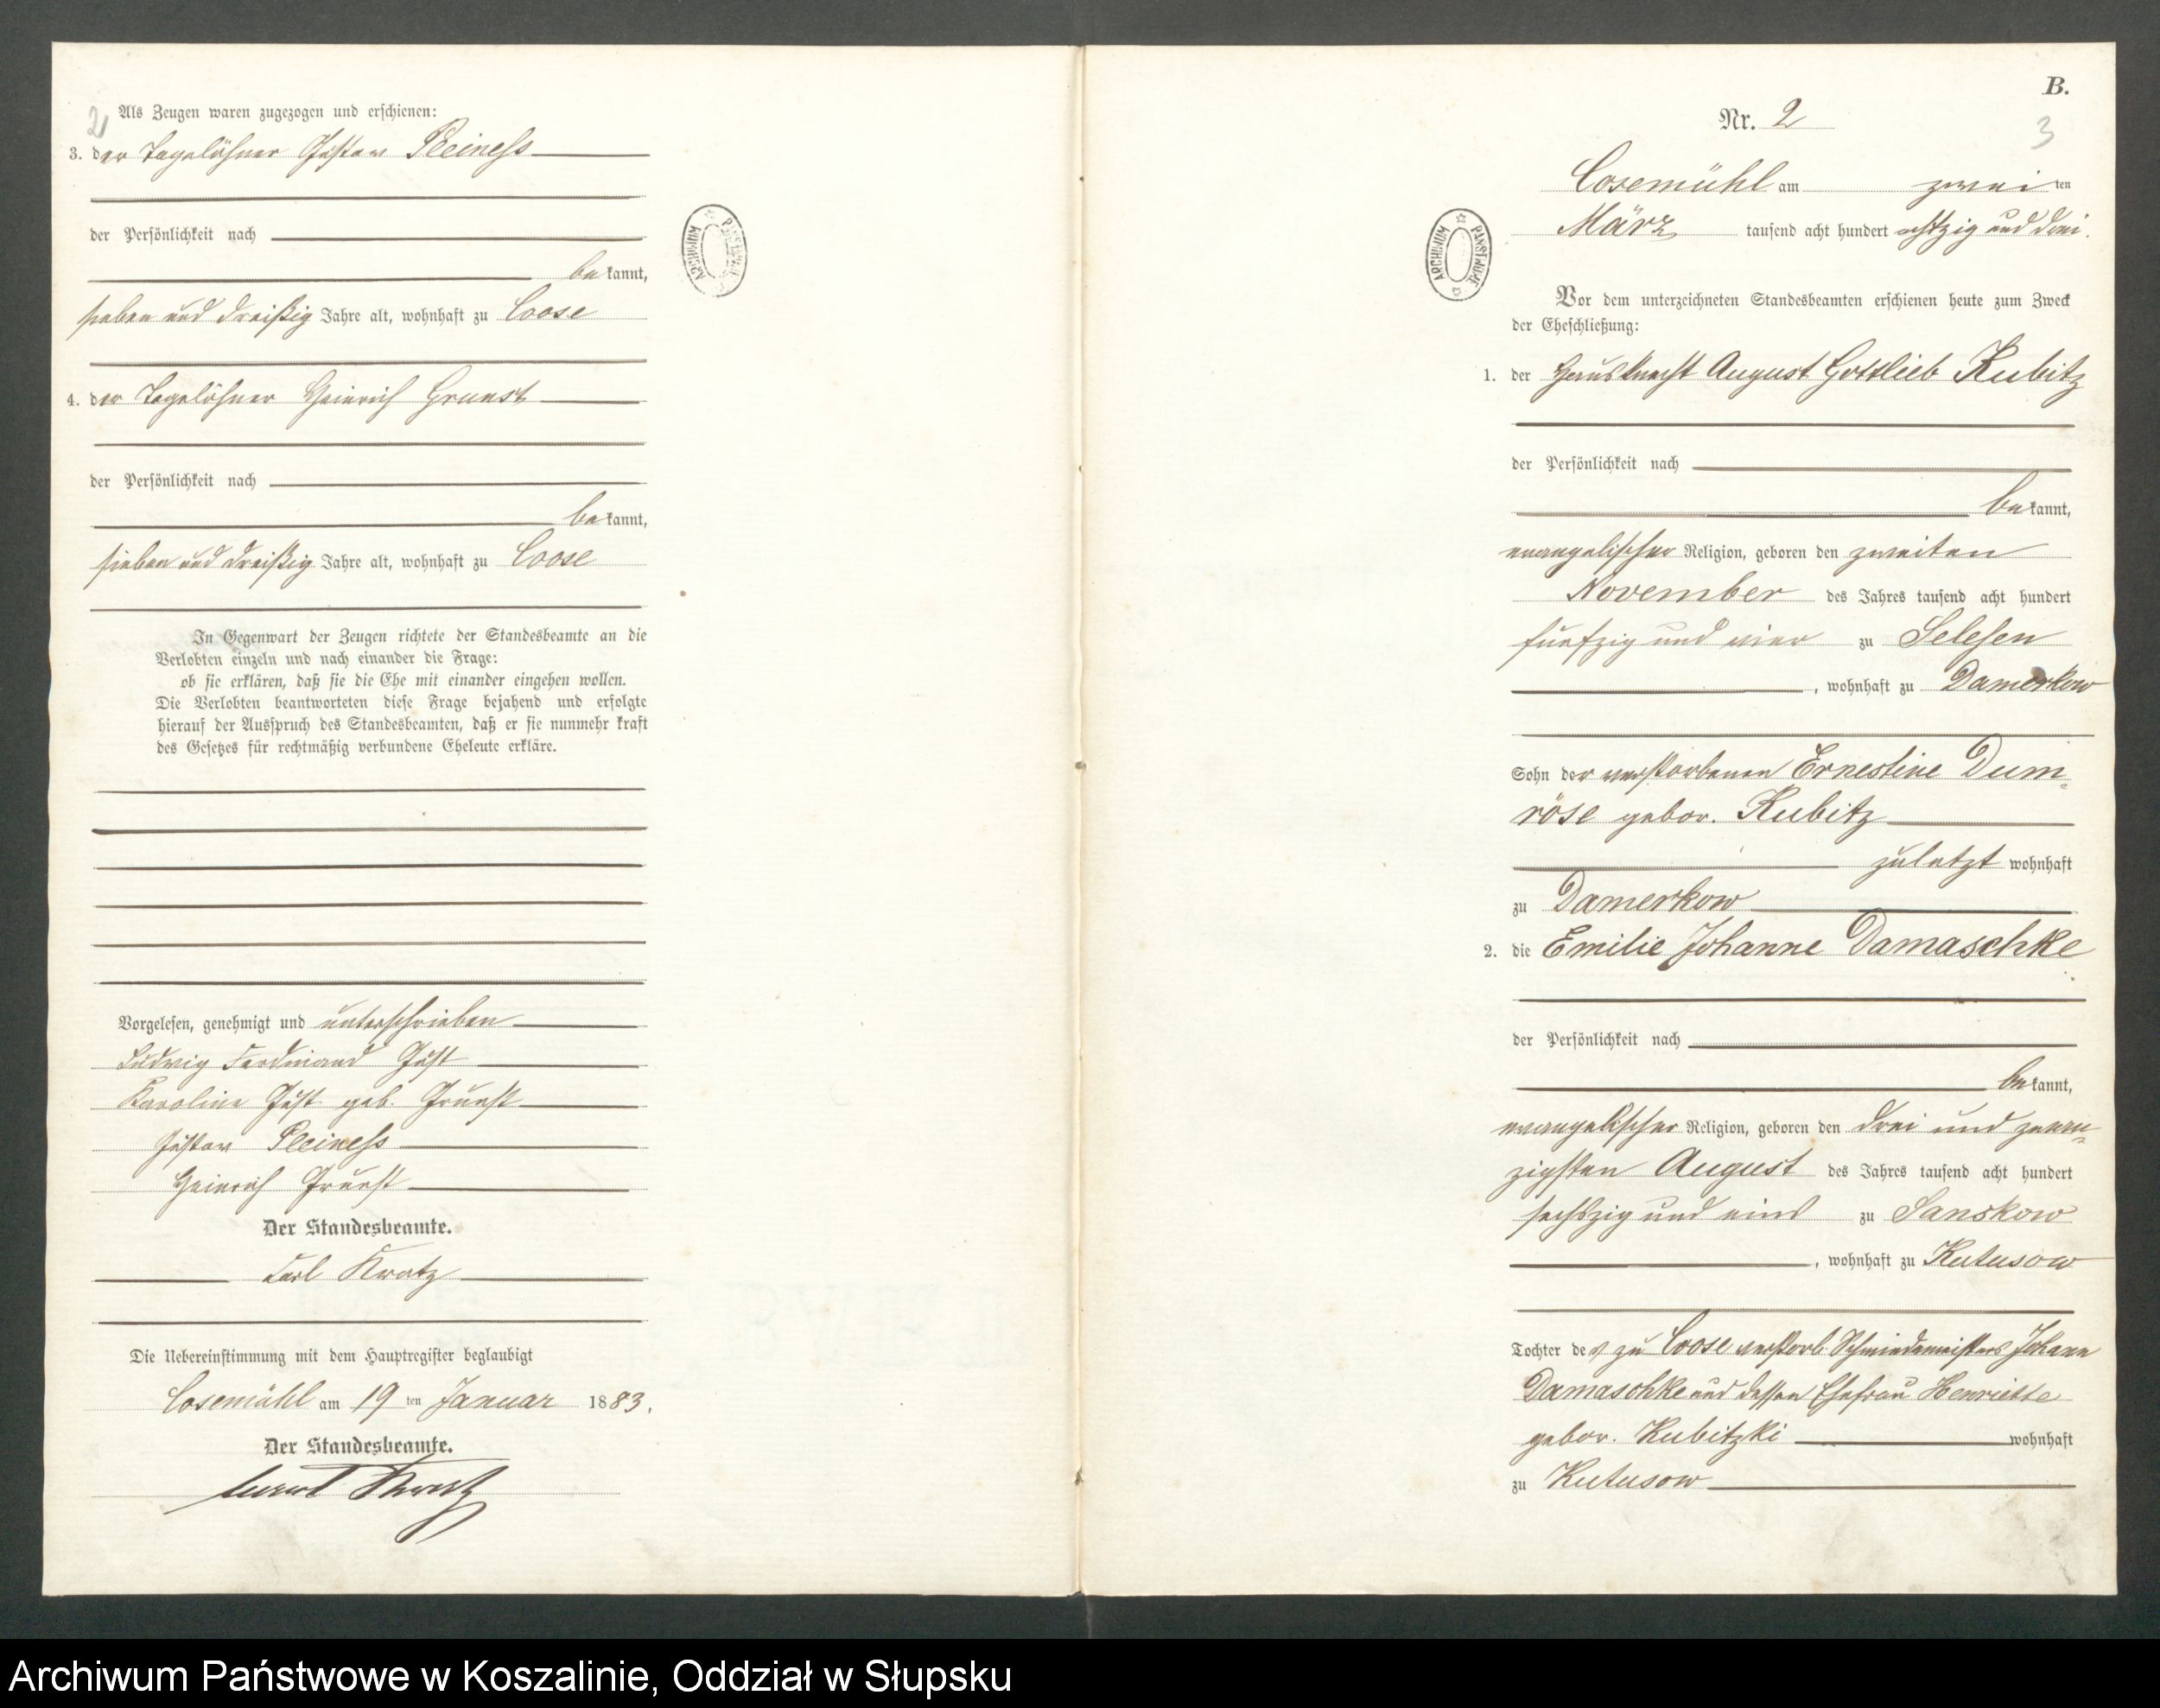 2
Als Zeugen waren zugezogen und erschienen:
3. der Tagelöhner Gustav Pleiness
der Persönlichkeit nach
bekannt,
sieben und dreißig Jahre alt, wohnhaft zu Coose
4. der Tagelöhner Heinrich Grunst
der Persönlichkeit nach
bekannt,
sieben und dreißig Jahre alt, wohnhaft zu Coose
In Gegenwart der Zeugen richtete der Standesbeamte an die
Verlobten einzeln und nach einander die Frage:
ob sie erklären, daß sie die Ehe mit einander eingehen wollen.
Die Verlobten beantworteten diese Frage bejahend und erfolgte
hierauf der Ausspruch des Standesbeamten, daß er sie nunmehr kraft
des Gesetzes für rechtmäßig verbundene Eheleute erkläre.
Vorgelesen, genehmigt und unterschrieben
Ludwig Ferdinand Just
Karoline Just geb. Grunst
Gustav Pleiness
Heinrich Grunst
Der Standesbeamte.
Carl Kratz
Die Uebereinstimmung mit dem Hauptregister beglaubigt
Cosemühl am 19 ten Januar 1883.
Der Standesbeamte.
Kratz
ARCHIWUM PAŃSTWOWE
B.
Nr. 2
3
Cosemühl am zwei ten
März tausend acht hundert achtzig und drei.
ARCHIWUM PAŃSTWOWE
Vor dem unterzeichneten Standesbeamten erschienen heute zum Zweck
der Eheschließung:
1. der Hausknecht August Gottlieb Kubitz
der Persönlichkeit nach
bekannt,
evangelischer Religion, geboren den zweiten
November des Jahres tausend acht hundert
fünfzig und vier zu Selesen
, wohnhaft zu Damerkow
Sohn der verstorbenen Ernestine Dum=
röse gebor. Kubitz
zuletzt wohnhaft
zu Damerkow
2. die Emilie Johanne Damaschke
der Persönlichkeit nach
bekannt,
evangelischer Religion, geboren den drei und zwan=
zigsten August des Jahres tausend acht hundert
sechszig und eins zu Sanskow
, wohnhaft zu Kutusow
Tochter des zu Coose verstorb. Schmiedemeisters Johann
Damaschke und dessen Ehefrau Henriette
gebor. Kubitzki wohnhaft
zu Kutusow
Archiwum Państwowe w Koszalinie, Oddział w Słupsku